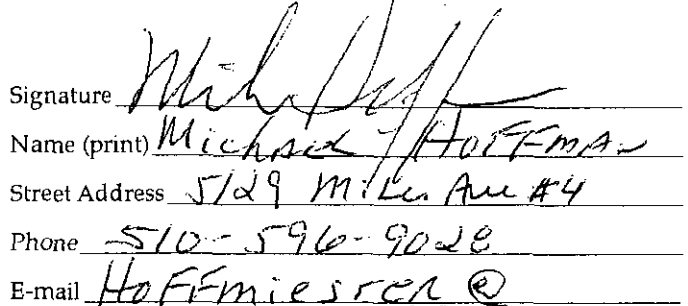 Signature Mike Hoff
Name (print) Michael Hoffman
Street Address 5129 Miles Ave #4
Phone 510-596-9028
E-mail Hoffmiester @